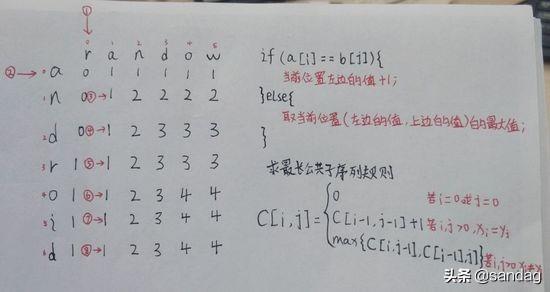 ①
0 1 2 3 4 5
r a n d o w
②→ 0 a 0 1 1 1 1 1
1 n 0 ③→1 2 2 2 2
2 d 0 ④→1 2 3 3 3
3 r 1 ⑤→1 2 3 3 3
4 o 1 ⑥→1 2 3 4 4
5 i 1 ⑦→1 2 3 4 4
6 d 1 ⑧→1 2 3 4 4
if (a[i]==b[j]){
当前位置左边的值+1;
}else{
取当前位置(左边的值,上边的值)的最大值;
}
求最长公共子序列规则
0 若i=0或j=0
C[i,j]={ C[i-1,j-1]+1 若i,j>0,xi=yj
max{C[i,j-1],C[i-1,j]} 若i,j>0,xi≠yj
头条 @sandag